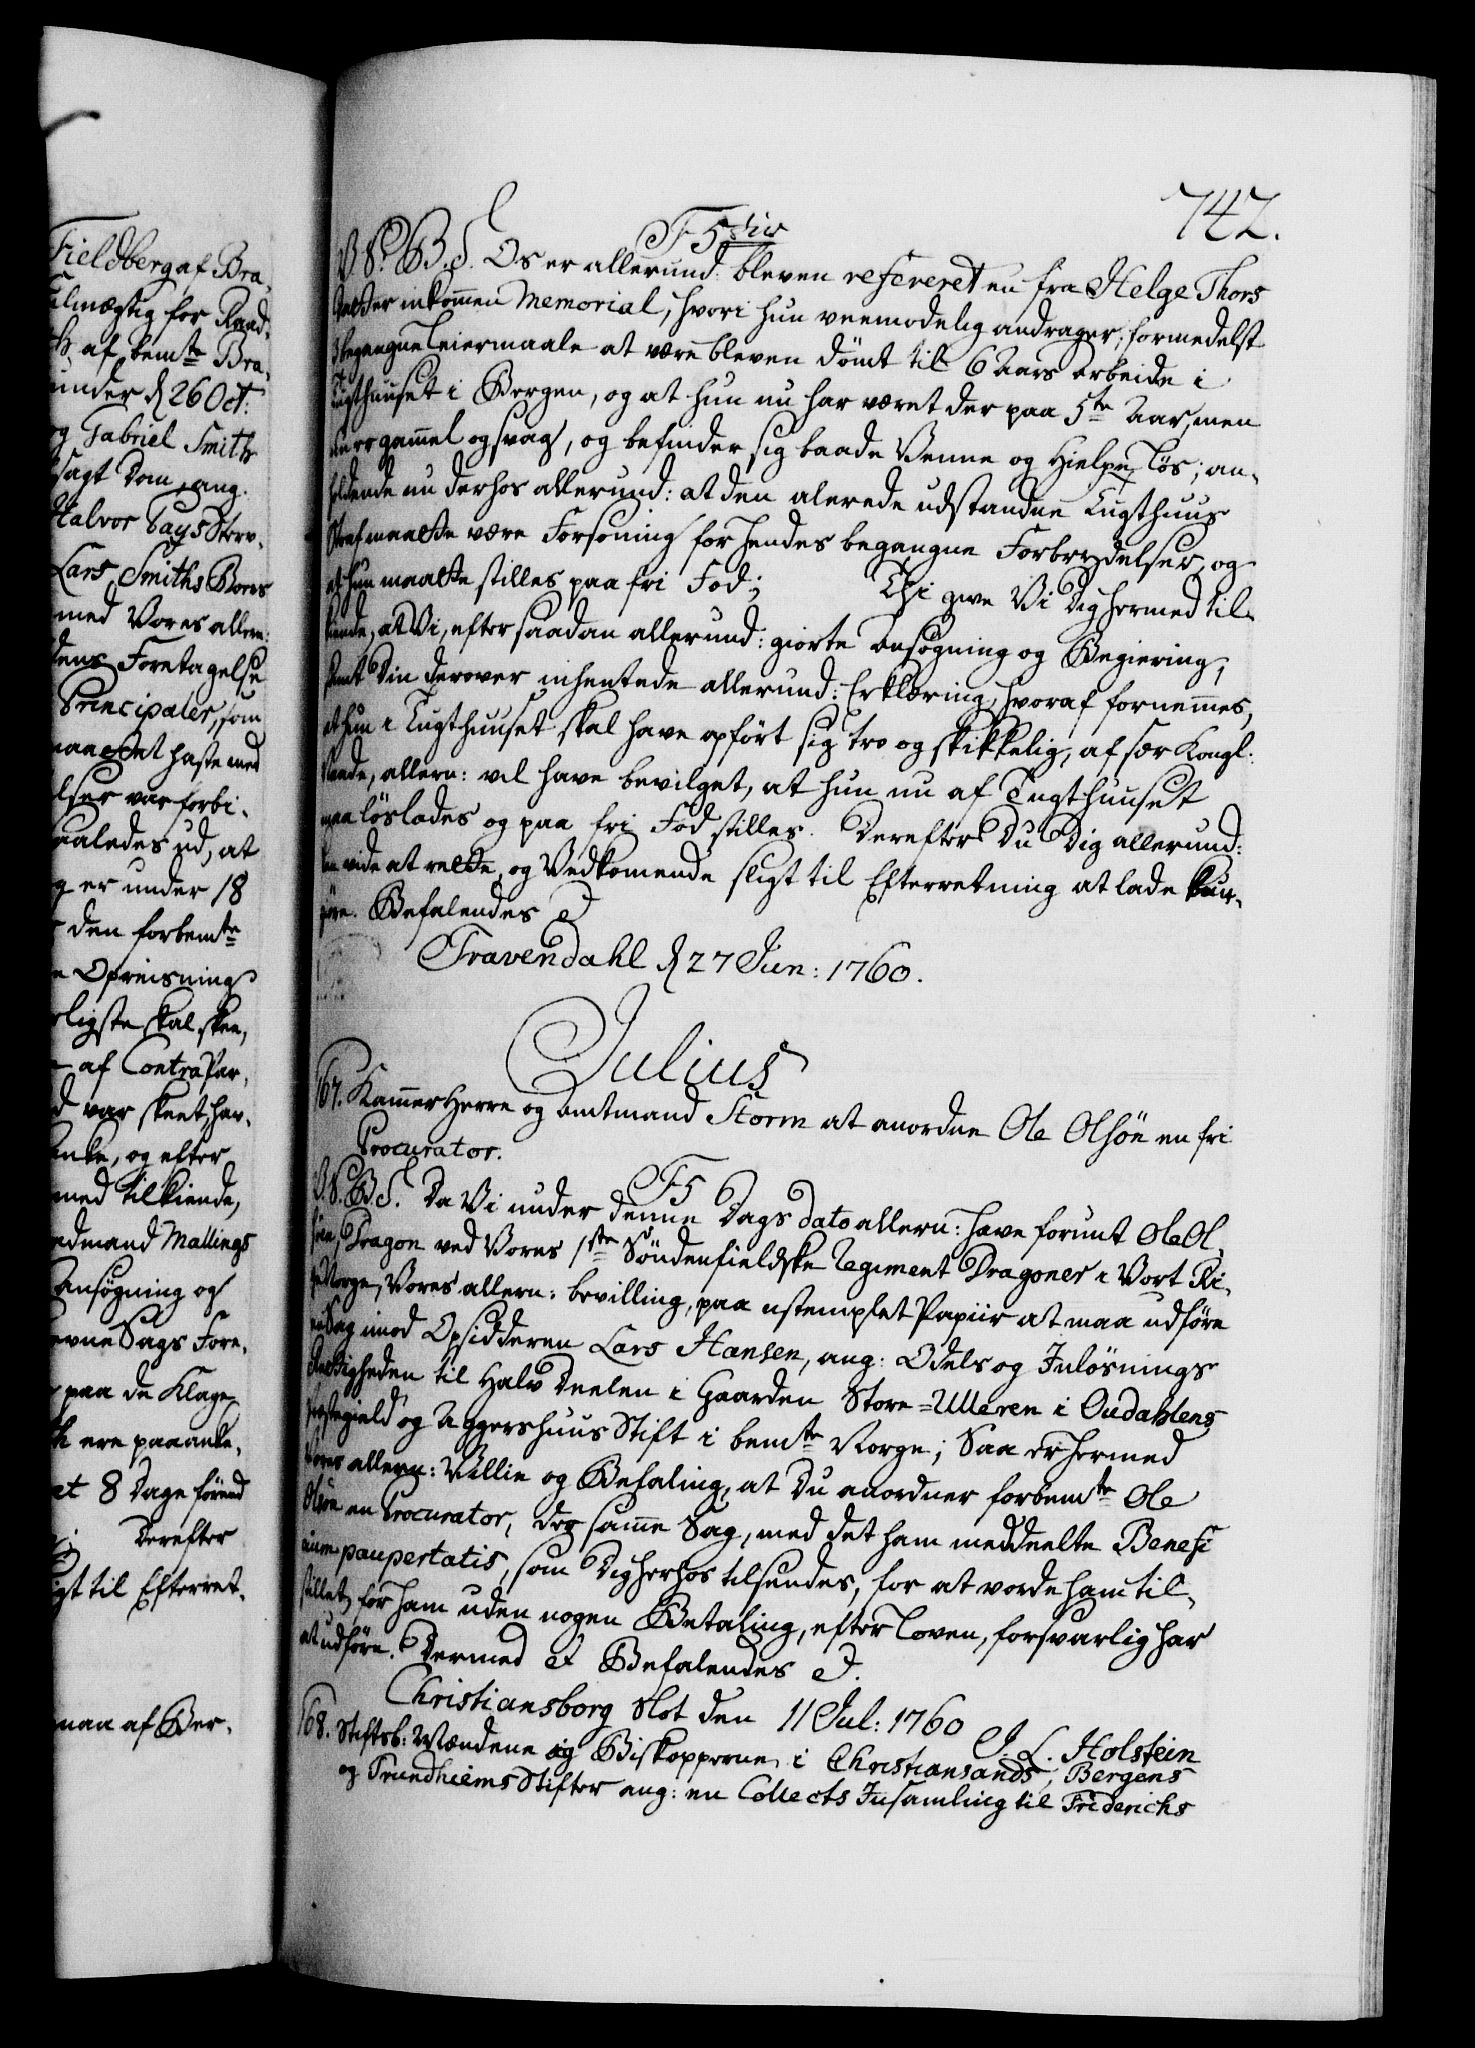 Fieldberg af Bra-
ulmægtig for Raad-
af bemte Bra-
under d 26 Oct:
og Gabriel Smith
sagt Dom, ang.
Halvor Pays Sterv-
Lars Smiths Børns
med Vores allern:
dens Foretagelse
Principaler, som
haste med
elser var forbi-
ledes ud, at
er under 18
den forbemte
Opreisning
ligste skal skee,
af Contra Par-
var skeet, hav-
anke, og efter
med tilkiende,
Raadmand Mallings
Ansøgning og
Sags Fore-
paa de Klage
ere paaanke-
8 Dage førend
Derefter
til Efterret-
maa af Ber-
742.
F 5 tus
V. S. G. B. T. Os er allerund: bleven refereret en fra Helge Thors
Datter inkommen Memorial, hvori hun veemodelig andrager, formedelst
3 begangne Leiermaale at være bleven dømt til 6 Aars Arbeide i
Tugthuuset i Bergen, og at hun nu har været der paa 5te Aar, men
er gammel og svag, og befinder sig baade Venne og Hielpe løs; an-
holdende nu derhos allerund: at den alerede udstandne Tugthuus
Straf maatte være Forsoning for hendes begangne Forbrydelser, og
at hun maatte stilles paa fri Fod; Thi give Vi Dig hermed til-
kiende, at Vi, efter saadan allerund: giorte Ansøgning og Begiering,
samt Din derover inhentede allerund: Erklæring, hvoraf fornemmes,
at hun i Tugthuuset skal have opført sig tro og skikkelig, af sær Kongl:
Naade, allern: vil have bevilget, at hun nu af Tugthuuset
maa løslades og paa fri Fod stilles. Derefter Du Dig allerund:
kan vide at rette, og Vedkommende sligt til Efterretning at lade kund-
giøre. Befalendes &
Travendahl d 27 Jun: 1760.
Julius
167. Kammer Herre og Amtmand Storm at anordne Ole Olsøn en fri
Procurator.
F 5
V. S. G. B. T. Da Vi under denne Dags dato allern: have forunt Ole Ol-
søn, Dragon ved Vores 1ste Søndenfieldske Regiment Dragoner i Vort Ri-
ge Norge, Vores allern: bevilling, paa ustemplet Papiir at maa udføre
en Sag imod Opsidderen Lars Hansen, ang: Odels og Inløsnings
Rettigheden til Halv Deelen i Gaarden Store-Ulleren i Oudahlens
Præstegield og Aggershuus Stift i bemte Norge; Saa er hermed
Vores allern: Villie og Befaling, at Du anordner forbemte Ole
Olsøn en Procurator, der samme Sag, med det ham meddeelte Benefi
cium paupertatis, som Dig herhos tilsendes, for at vorde ham til-
stillet, for ham uden nogen Betaling, efter Loven, forsvarlig har
at udføre. Dermed & Befalendes &.
Christiansborg Slot den 11 Jul: 1760 J. L. Holstein
168. Stiftsb: Mændene og Biskopperne i Christiansands, Bergens
og Trundhiems Stifter ang: en Collects Insamling til Friderichs